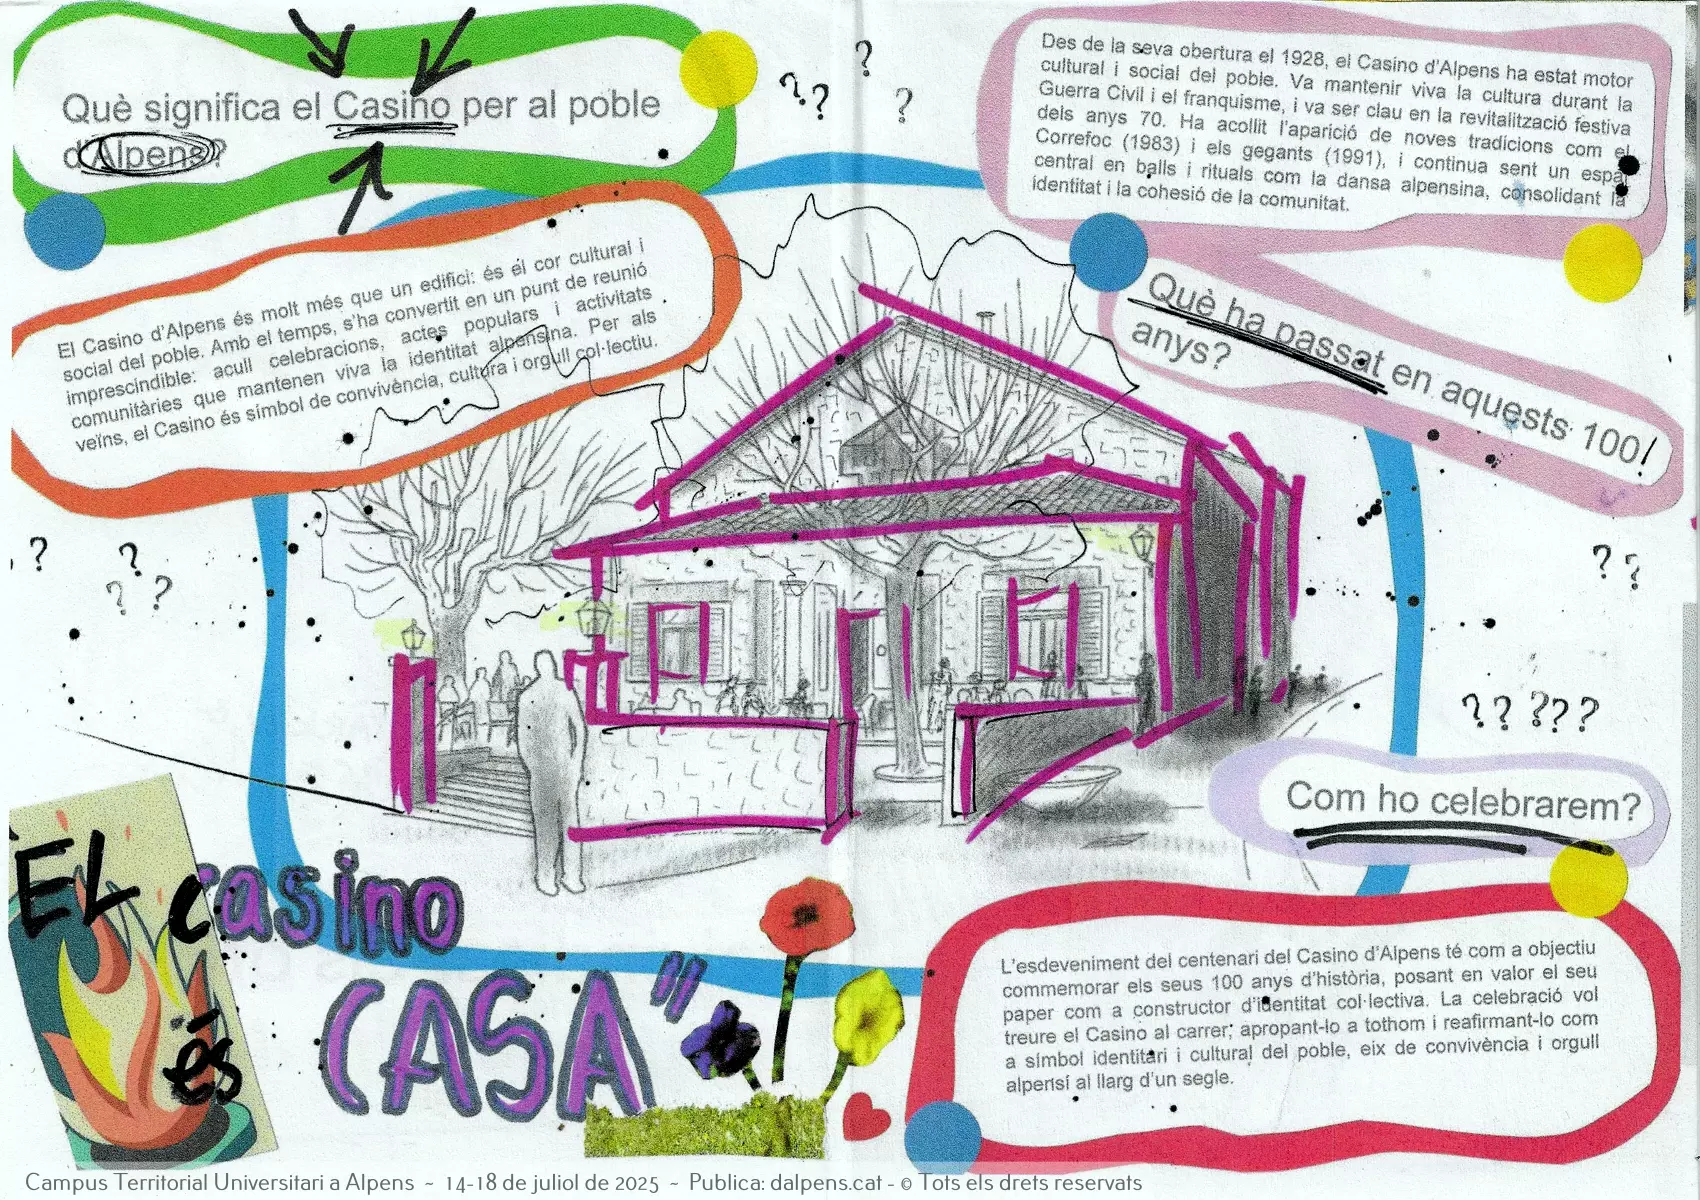 Què significa el Casino per al poble
d'Alpens?
??
?
?
El Casino d'Alpens és molt més que un edifici: és el cor cultural i
social del poble. Amb el temps, s'ha convertit en un punt de reunió
imprescindible: acull celebracions, actes populars i activitats
comunitàries que mantenen viva la identitat alpensina. Per als
veïns, el Casino és símbol de convivència, cultura i orgull col·lectiu.
Des de la seva obertura el 1928, el Casino d'Alpens ha estat motor
cultural i social del poble. Va mantenir viva la cultura durant la
Guerra Civil i el franquisme, i va ser clau en la revitalització festiva
dels anys 70. Ha acollit l'aparició de noves tradicions com el
Correfoc (1983) i els gegants (1991), i continua sent un espai
central en balls i rituals com la dansa alpensina, consolidant la
identitat i la cohesió de la comunitat.
Què ha passat en aquests 100
anys?
? ?
? ?
? ?
? ? ? ? ?
Com ho celebrarem?
L'esdeveniment del centenari del Casino d'Alpens té com a objectiu
commemorar els seus 100 anys d'història, posant en valor el seu
paper com a constructor d'identitat col·lectiva. La celebració vol
treure el Casino al carrer, apropant-lo a tothom i reafirmant-lo com
a símbol identitari i cultural del poble, eix de convivència i orgull
alpensí al llarg d'un segle.
"EL casino
és
CASA"
Campus Territorial Universitari a Alpens ~ 14-18 de juliol de 2025 ~ Publica: dalpens.cat - © Tots els drets reservats